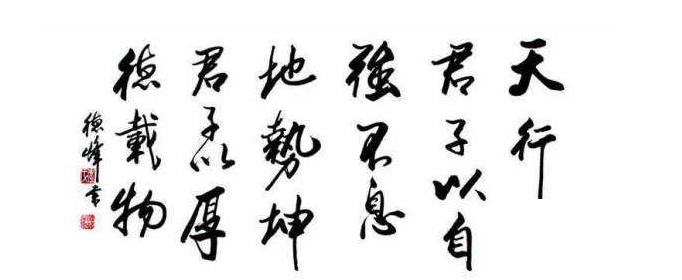 天行
君子以自
強不息
地勢坤
君子以厚
德載物
德峰書